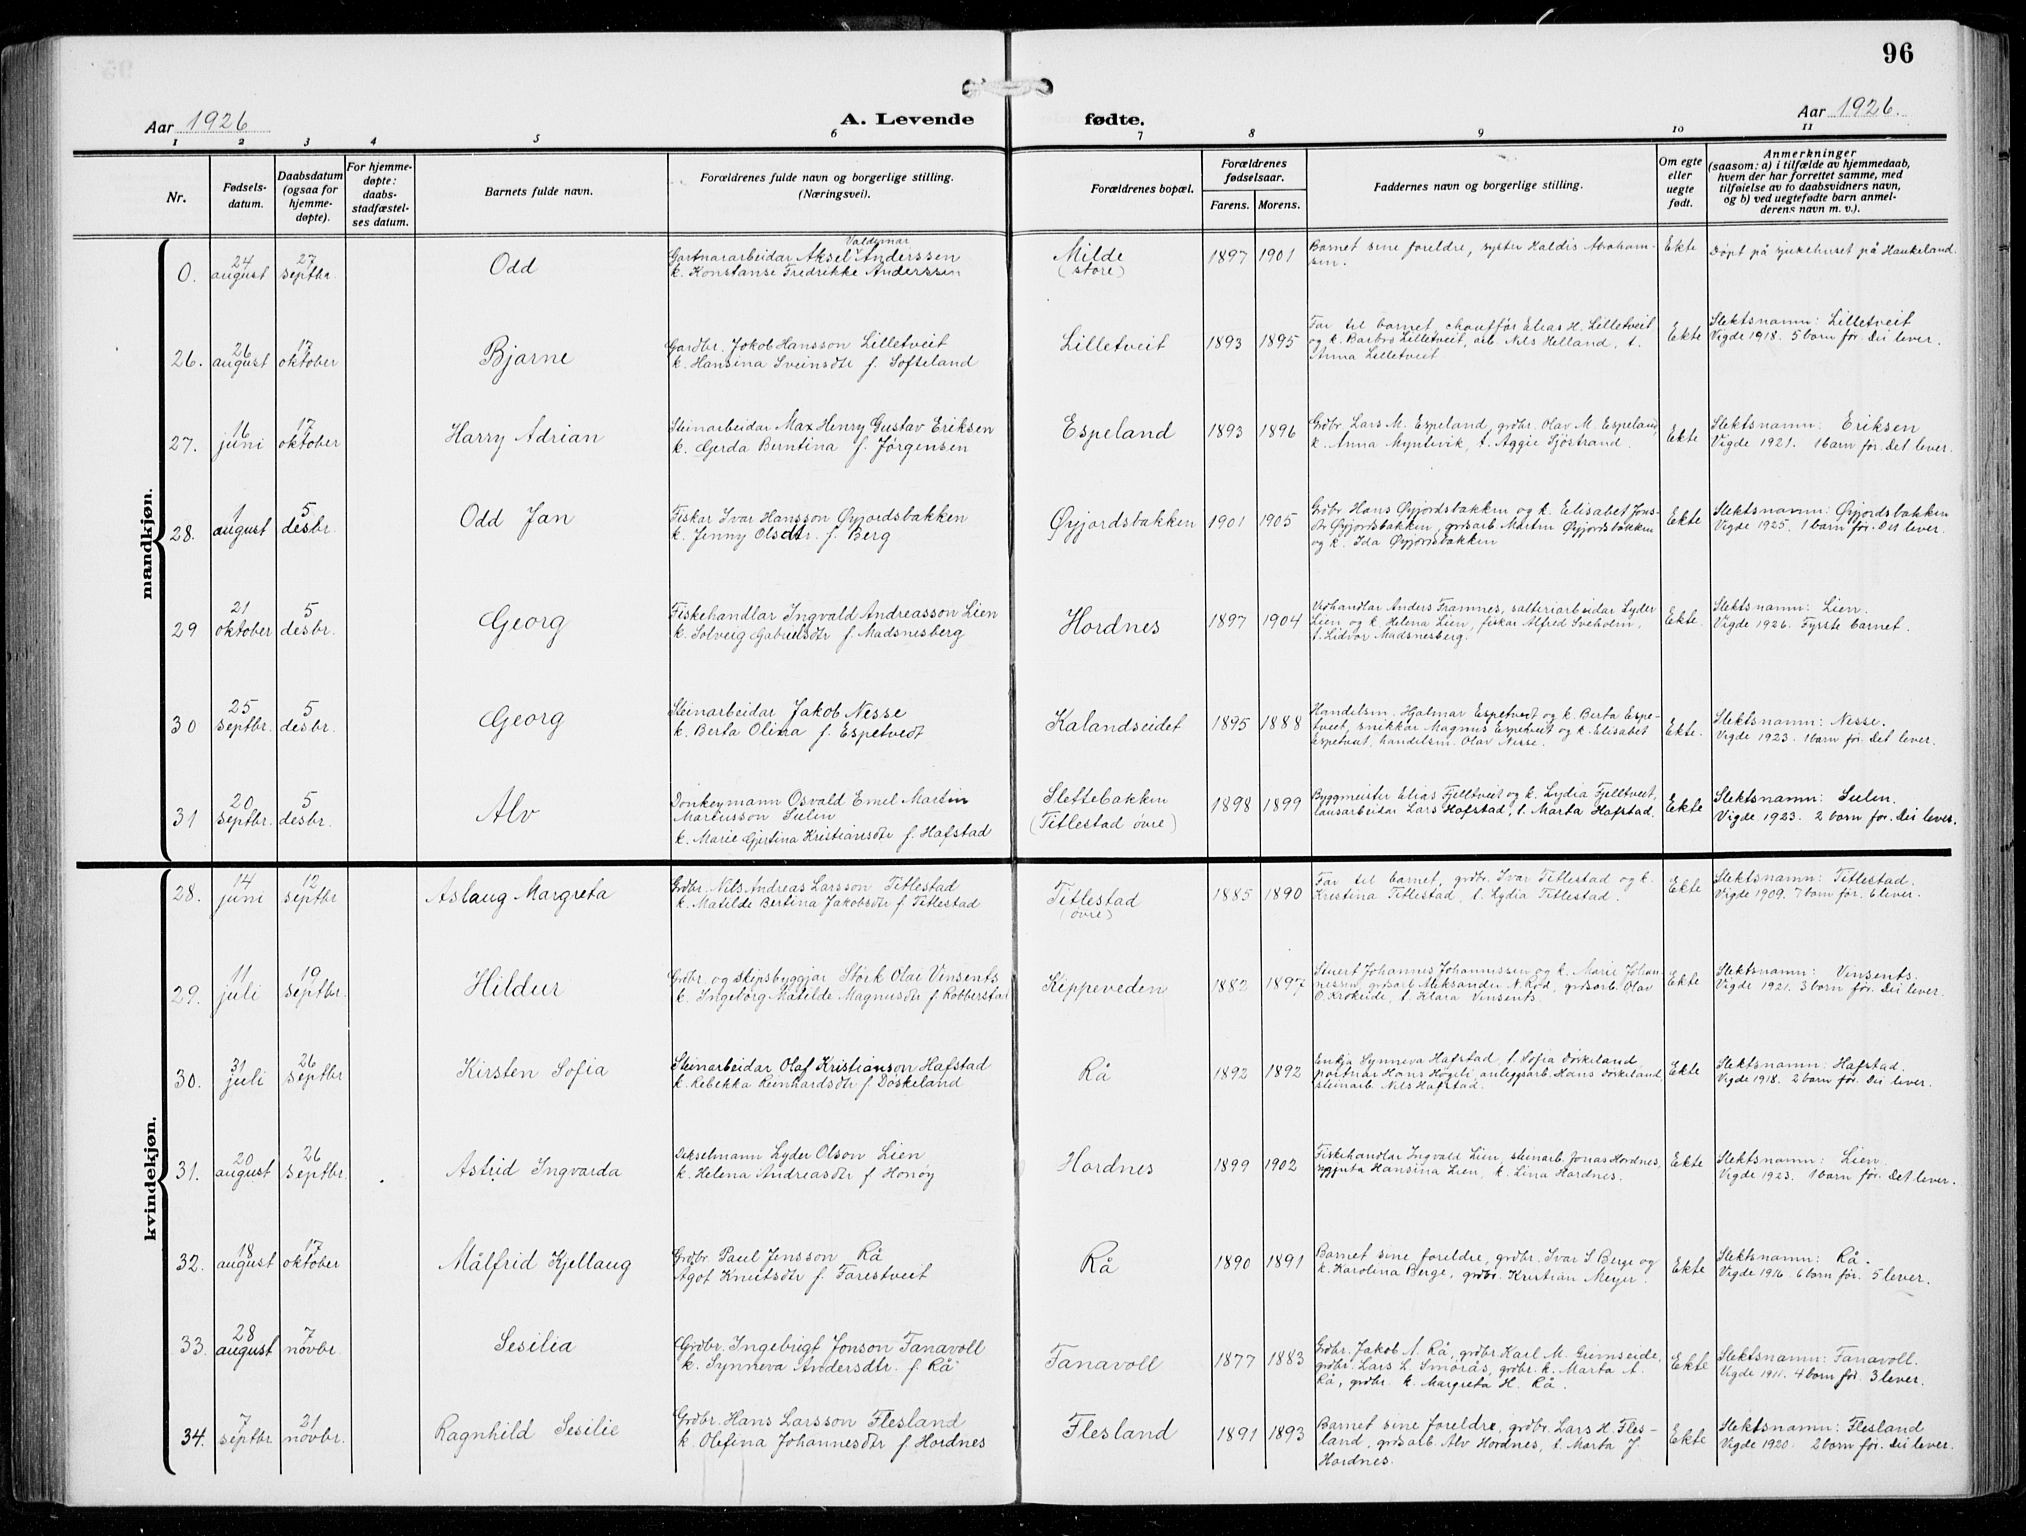 96
Aar 1926
A. Levende fødte.
Aar 1926.
1 2 3 4 5 6 7 8 9 10 11
Nr.
Fødsels-
datum.
Daabsdatum
(ogsaa for
hjemme-
døpte).
For hjemme-
døpte:
daabs-
stadfæstel-
ses datum.
Barnets fulde navn.
Forældrenes fulde navn og borgerlige stilling.
(Næringsvei).
Forældrenes bopæl.
Forældrenes
fødselsaar.
Farens. Morens.
Faddernes navn og borgerlige stilling.
Om egte
eller
uegte
født.
Anmerkninger
(saasom: a) i tilfælde av hjemmedaab,
hvem der har forrettet samme, med
tilføielse av to daabsvidners navn,
og b) ved uegtefødte barn anmel-
derens navn m. v.).
mandkjøn.
0.
24
august
27
septbr.
Odd
Valdemar
Gartnararbeidar Aksel Anderssen
k. Konstanse Fredrikke Anderssen
Milde
(store)
1897 1901
Barnet sine foreldre, syster Haldis Abraham-
sen.
Ekte
Døpt på sjukehuset på Haukeland.
26.
26
august
17
oktober
Bjarne
Gardbr. Jakob Hansson Lilletveit
k. Hansina Sveinsdtr f. Softeland
Lilletveit
1893 1895
Far til barnet, chaufför Elias H. Lilletveit
og k. Barbro Lilletveit, arb. Nils Helland, t.
Anna Lilletveit
Ekte
Slektsnamn: Lilletveit
Vigde 1918. 5 born før. Dei lever.
27.
16
juni
17
oktober
Harry Adrian
Steinarbeidar Max Henry Gustav Eriksen
k. Gerda Berntina f. Jörgensen
Espeland
1893 1896
Grdbr. Lars M. Espeland, grdbr. Olav M. Espeland,
k. Anna Myntevik, t. Aggie Sjöstrand.
Ekte
Slektsnamn: Eriksen
Vigde 1921. 1 barn før. Det lever.
28.
1
august
5
desbr.
Odd Jan
Fiskar Ivar Hansson Øyjordsbakken
k. Jenny Olsdtr. f. Berg
Øyjordsbakken
1901 1905
Grdbr Hans Øyjordsbakken og k. Elisabet Jons-
dtr Øyjordsbakken, grdsarb. Martin Øyjordsbakken
og k. Ida Øyjordsbakken
Ekte
Slektsnamn: Øyjordsbakken
Vigde 1925. 1 barn før. Det lever.
29
21
oktober
5
desbr.
Georg
Fiskehandlar Ingvald Andreasson Lien
k. Solveig Gabrielsdtr f. Madsnesberg
Hordnes
1897 1904
Vedhandlar Anders Framnes, salteriarbeidar Lyder
Lien og k. Helena Lien, fiskar Alfred Sveholm,
t. Lidvor Madsnesberg.
Ekte.
Slektsnamn: Lien.
Vigde 1926. Fyrste barnet.
30
25
septbr.
5
desbr.
Georg
Steinarbeidar Jakob Nesse
k. Berta Olina f. Espetvedt
Kalandseidet
1895 1888
Handelsm. Hjalmar Espetvedt og k. Berta Espe-
tveit, snikkar Magnus Espetveit og k. Elisabet
Espetveit, handelsm. Olav Nesse.
Ekte.
Slektsnamn: Nesse.
Vigde 1923. 1 barn før. Det lever.
31
20
septbr.
5
desbr.
Alv
Donkeymann Osvald Emel Martin
Martinsson Sulen
k. Marie Gjertina Kristiansdtr f. Hafstad
Slettebakken
(Titlestad övre)
1898 1899
Byggmeister Elias Fjelltveit og k. Lydia Fjelltveit,
lausarbeidar Lars Hafstad, t. Marta Hafstad.
Ekte
Slektsnamn: Sulen.
Vigde 1923. 2 born før. Dei lever.
kvindekjøn.
28.
14
juni
12
septbr
Aslaug Margreta
Grdbr. Nils Andreas Larsson Titlestad
k. Matilde Bertina Jakobsdtr f. Titlestad
Titlestad
(övre)
1885 1890
Far til barnet, grdbr. Ivar Titlestad og k.
Kristina Titlestad, t. Lydia Titlestad.
Ekte
Slektsnamn: Titlestad.
Vigde 1909. 7 born før. 6 lever.
29.
11
juli
19
septbr.
Hildur
Grdbr. og skipsbyggjar Störk Olai Vinsents
k. Ingeborg Matilde Magnusdtr f. Robberstad
Kippeveden
1882 1897
Johannes Johannessen og k. Marie Johan-
nessen, grdsarb Aleksander N. Röd, grdsarb. Olav
O. Krokeide, t. Klara Vinsents.
Ekte
Slektsnamn: Vinsents.
Vigde 1921. 3 born før. Dei lever.
30.
31
juli
26
septbr
Kirsten Sofia
Steinarbeidar Olaf Kristianson Hafstad
k. Rebekka Reinhardsdtr f. Döskeland
Rå
1892 1892
Enkja Synneva Hafstad, t. Sofia Döskeland
portnar Hans Högeli, anleggsarb. Hans Döskeland
steinarb. Nils Hafstad.
Ekte
Slektsnamn: Hafstad.
Vigde 1918. 2 born før. Dei lever.
31.
20
august
26
septbr.
Astrid Ingvarda
Dekselmann Lyder Olson Lien
k. Helena Andreasdtr f. Honöy
Hordnes
1899 1902
Fiskehandlar Ingvald Lien, steinarb. Jonas Hordnes,
Hansina Lien, k. Lina Hordnes.
Ekte
Slektsnamn: Lien.
Vigde 1923. 1 barn før. Det lever.
32.
18
august
17
oktober
Målfrid Kjellaug
Grdbr. Paul Jensson Rå
Agot Knutsdtr f. Farestveit
Rå
1890 1891
Barnet sine foreldre, grdbr. Ivar S Berge og
k. Karolina Berge, grdbr. Kristian Meyer.
Ekte
Slektsnamn: Rå.
Vigde 1916. 6 born før. 5 lever.
33.
28
august
7
novbr.
Sesilia
Grdbr. Ingebrigt Jonson Fanavoll
k. Synneva Andersdtr. f. Rå
Fanavoll
1877 1883
Grdbr. Jakob A. Rå, grdbr Karl M. Grimseide,
grdbr. Lars L. Smörås, grdbr. k. Marta A.
Rå, grdbr. k. Margreta H. Rå.
Ekte
Slektsnamn: Fanavoll.
Vigde 1911. 4 born før. 3 lever.
34.
7
septbr
21
novbr.
Ragnhild Sesilie
Grdbr. Hans Larsson Flesland
k. Olefina Johannesdtr f. Hordnes
Flesland
1891 1893
Barnet sine foreldre, grdbr. Lars H. Fles-
land, grdsarb. Alv Hordnes, t. Marta J.
Hordnes.
Ekte
Slektsnamn: Flesland
Vigde 1920. 2 born før. Dei lever.